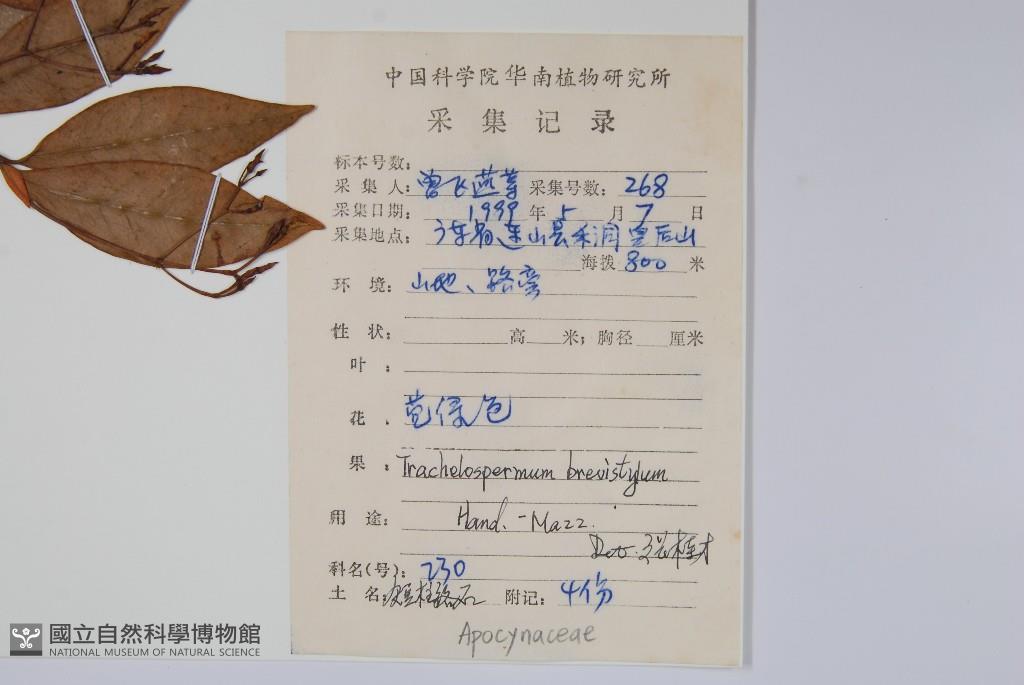 中国科学院华南植物研究所
采集记录
标本号数:
采集人: 曾飞燕等 采集号数: 268
采集日期: 1999 年 5 月 7 日
采集地点: 广东省连山县禾洞 后山
海拨 800 米
环境: 山地、路旁
性状: 高 米; 胸径 厘米
叶:
花. 绿色
果: Trachelospermum brevistylum
用途: Hand.-Mazz.
Det.
科名(号): 230
土名: 短柱络石 附记: 4份
Apocynaceae
國立自然科學博物館
NATIONAL MUSEUM OF NATURAL SCIENCE